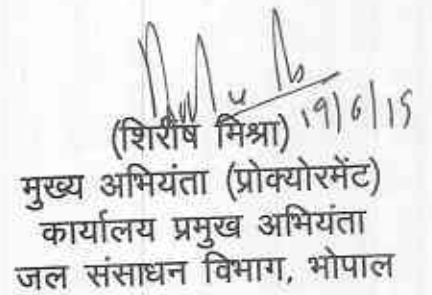 (शिरीष मिश्रा) 19/6/15
मुख्य अभियंता (प्रोक्योरमेंट)
कार्यालय प्रमुख अभियंता
जल संसाधन विभाग, भोपाल